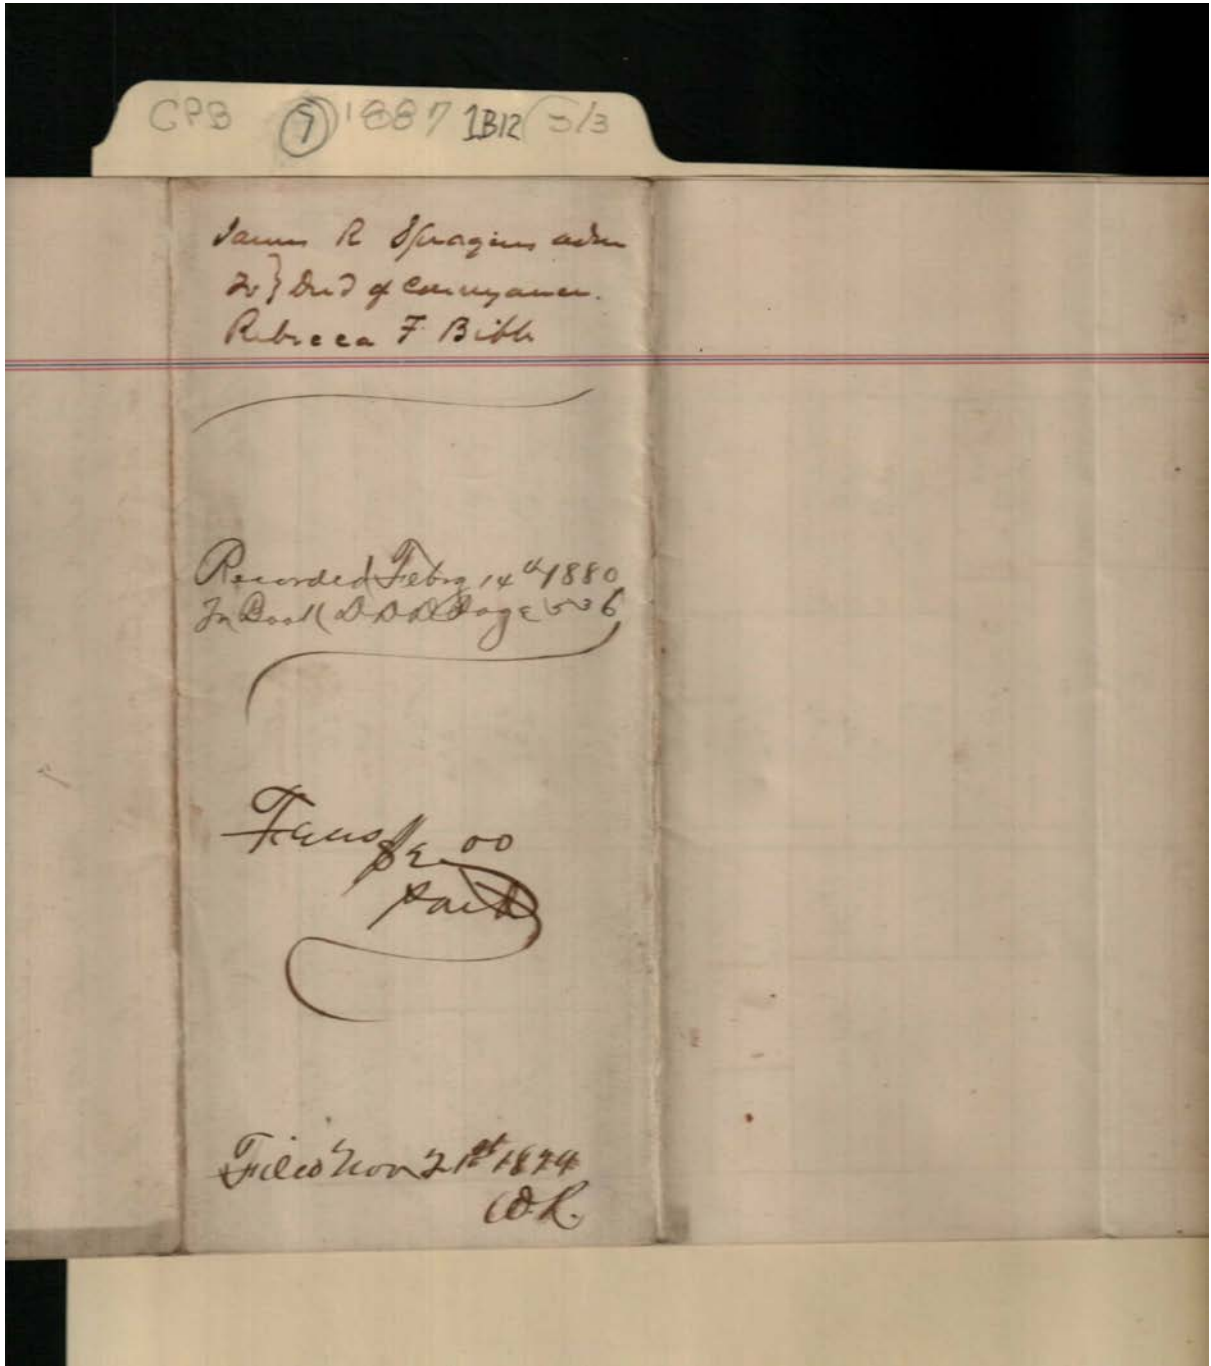 CPB 1887 1B12 5/3
James R Spragins adm
To } Deed of Conveyance.
Rebecca F Bibb
Recorded Febry 14th 1880
In Book D D D Page 536
00
Paid
Filed Nov 21st 1874